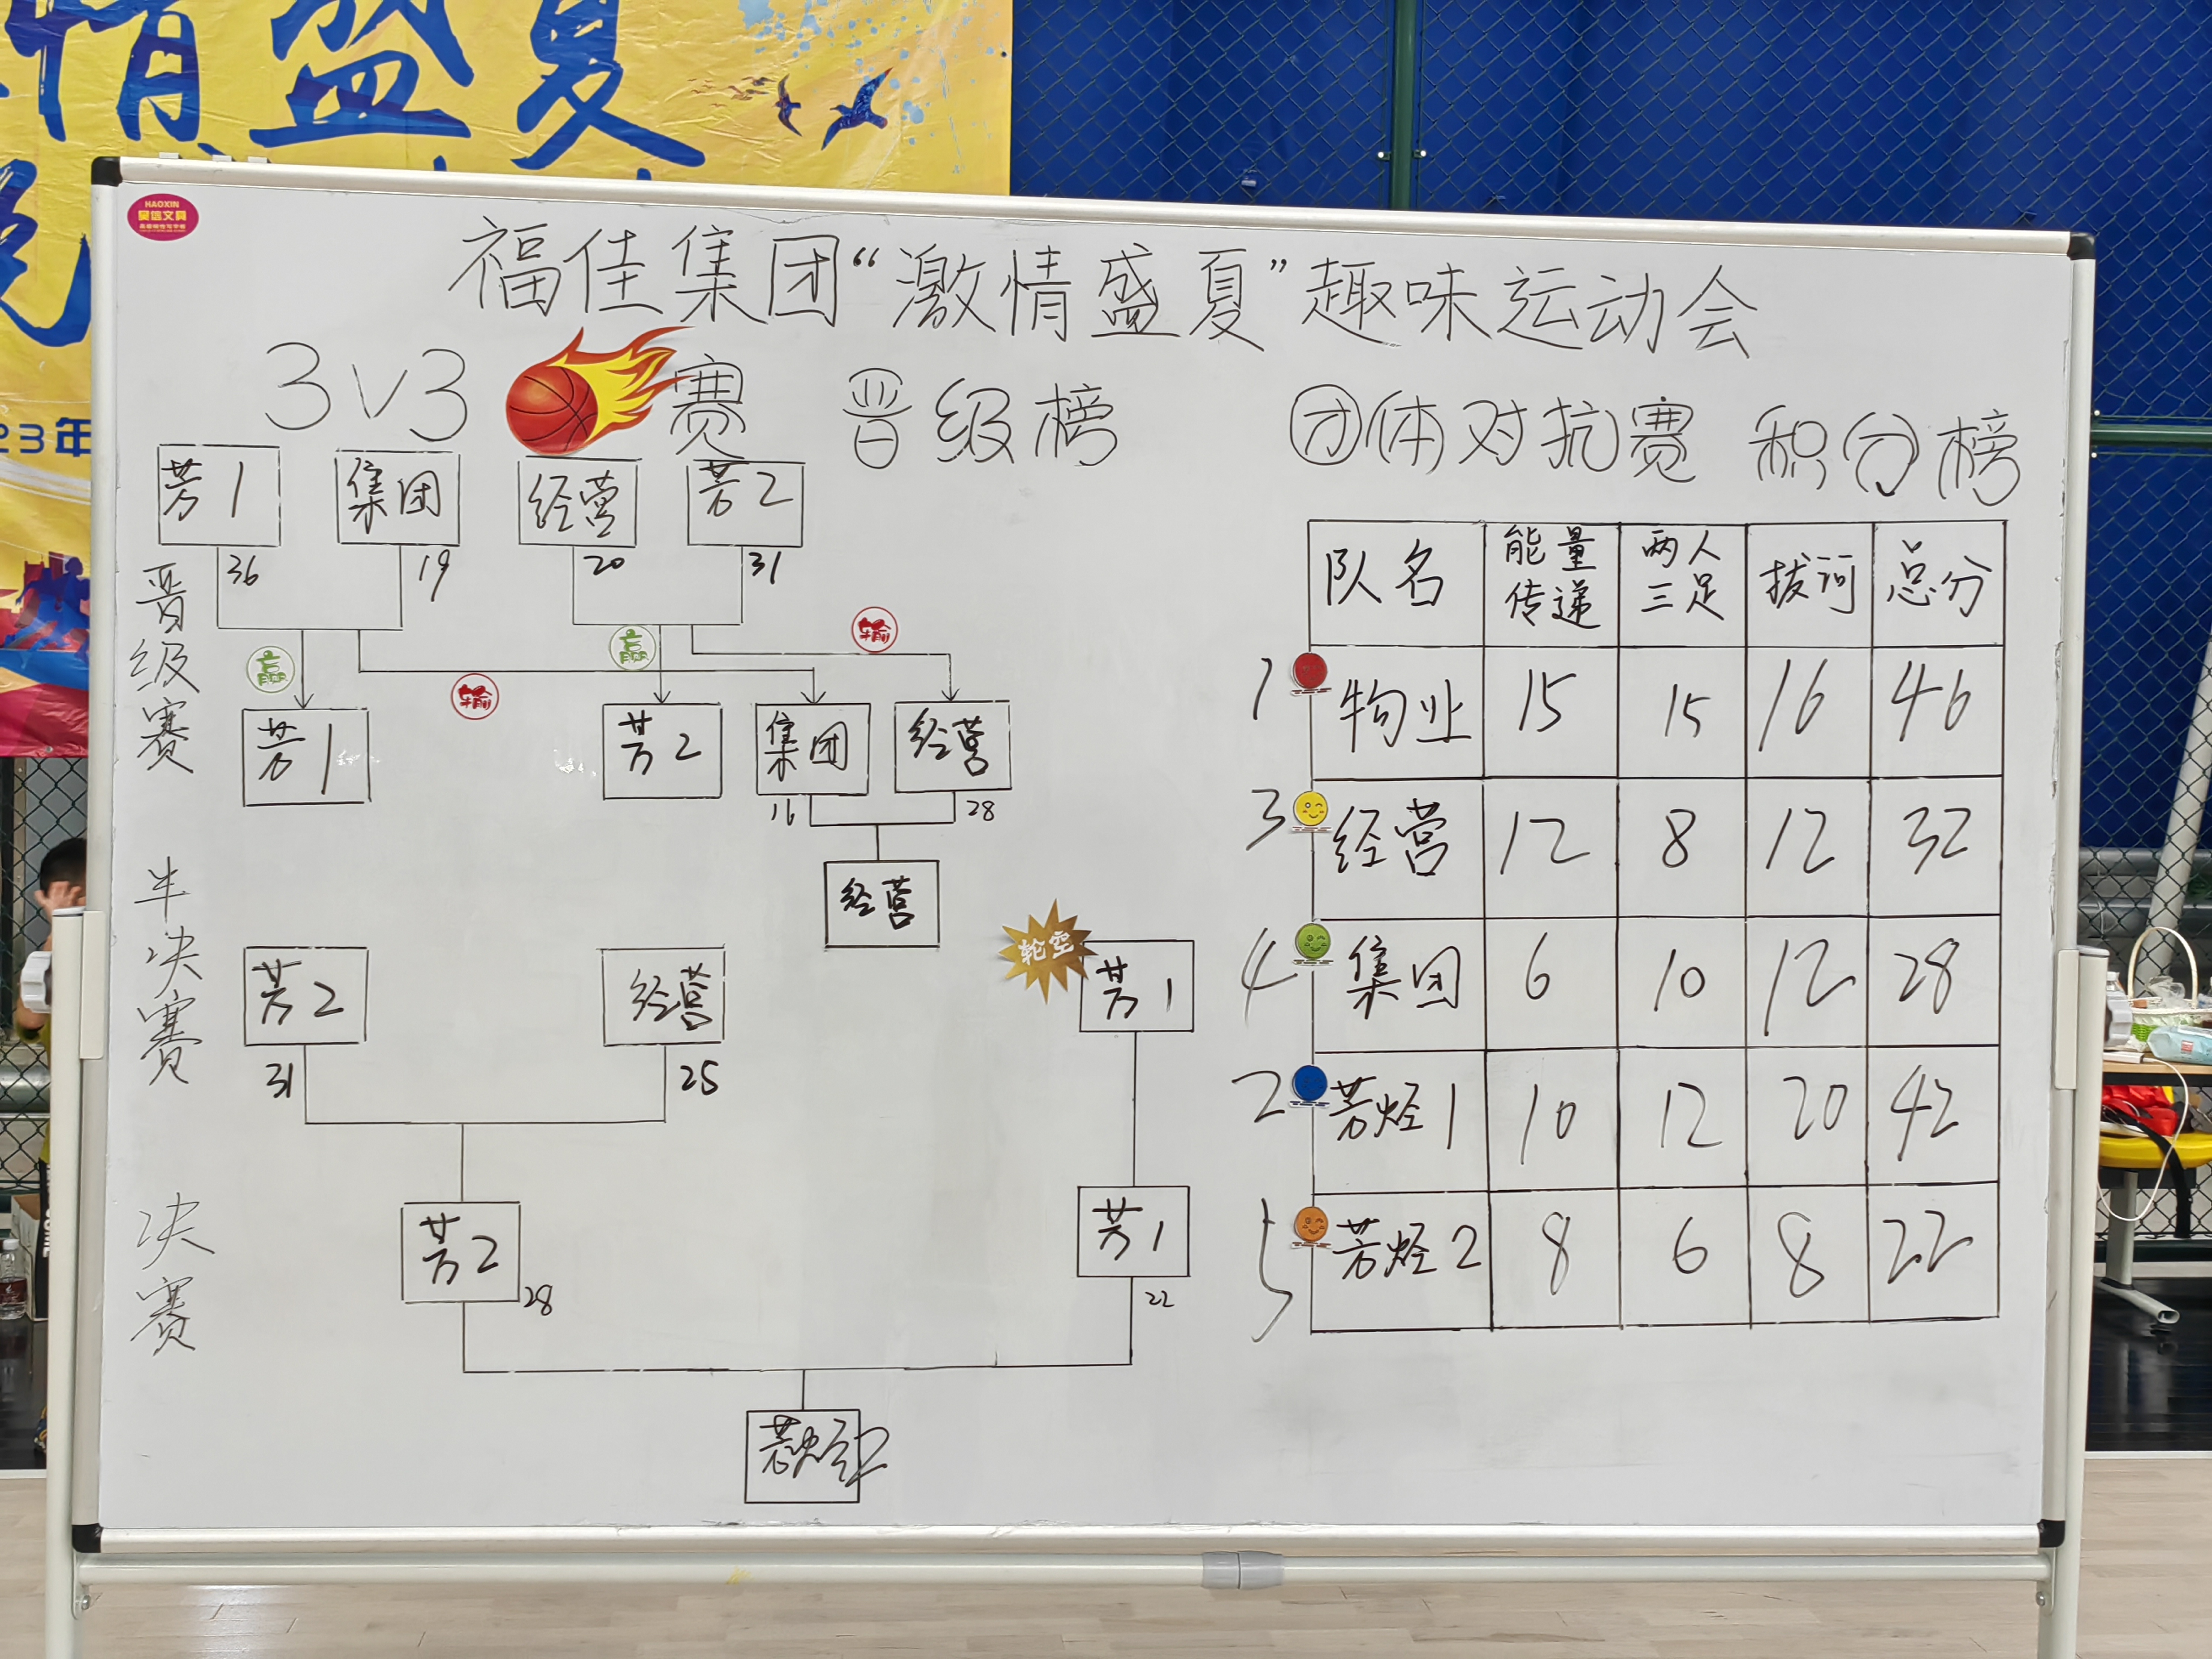 情盛夏
23年
HAOXIN
昊信文具
福佳集团“激情盛夏”趣味运动会
3V3 赛 晋级榜
芳1 集团 经营 芳2
36 19 20 31
晋级赛
赢 输 赢 输
芳1 芳2 集团 经营
16 28
经营
半决赛
轮空
芳2 经营 芳1
31 25
决赛
芳2 芳1
28 22
芳烃2
团体对抗赛 积分榜
队名 能量传递 两人三足 拔河 总分
1 物业 15 15 16 46
3 经营 12 8 12 32
4 集团 6 10 12 28
2 芳烃1 10 12 20 42
5 芳烃2 8 6 8 22